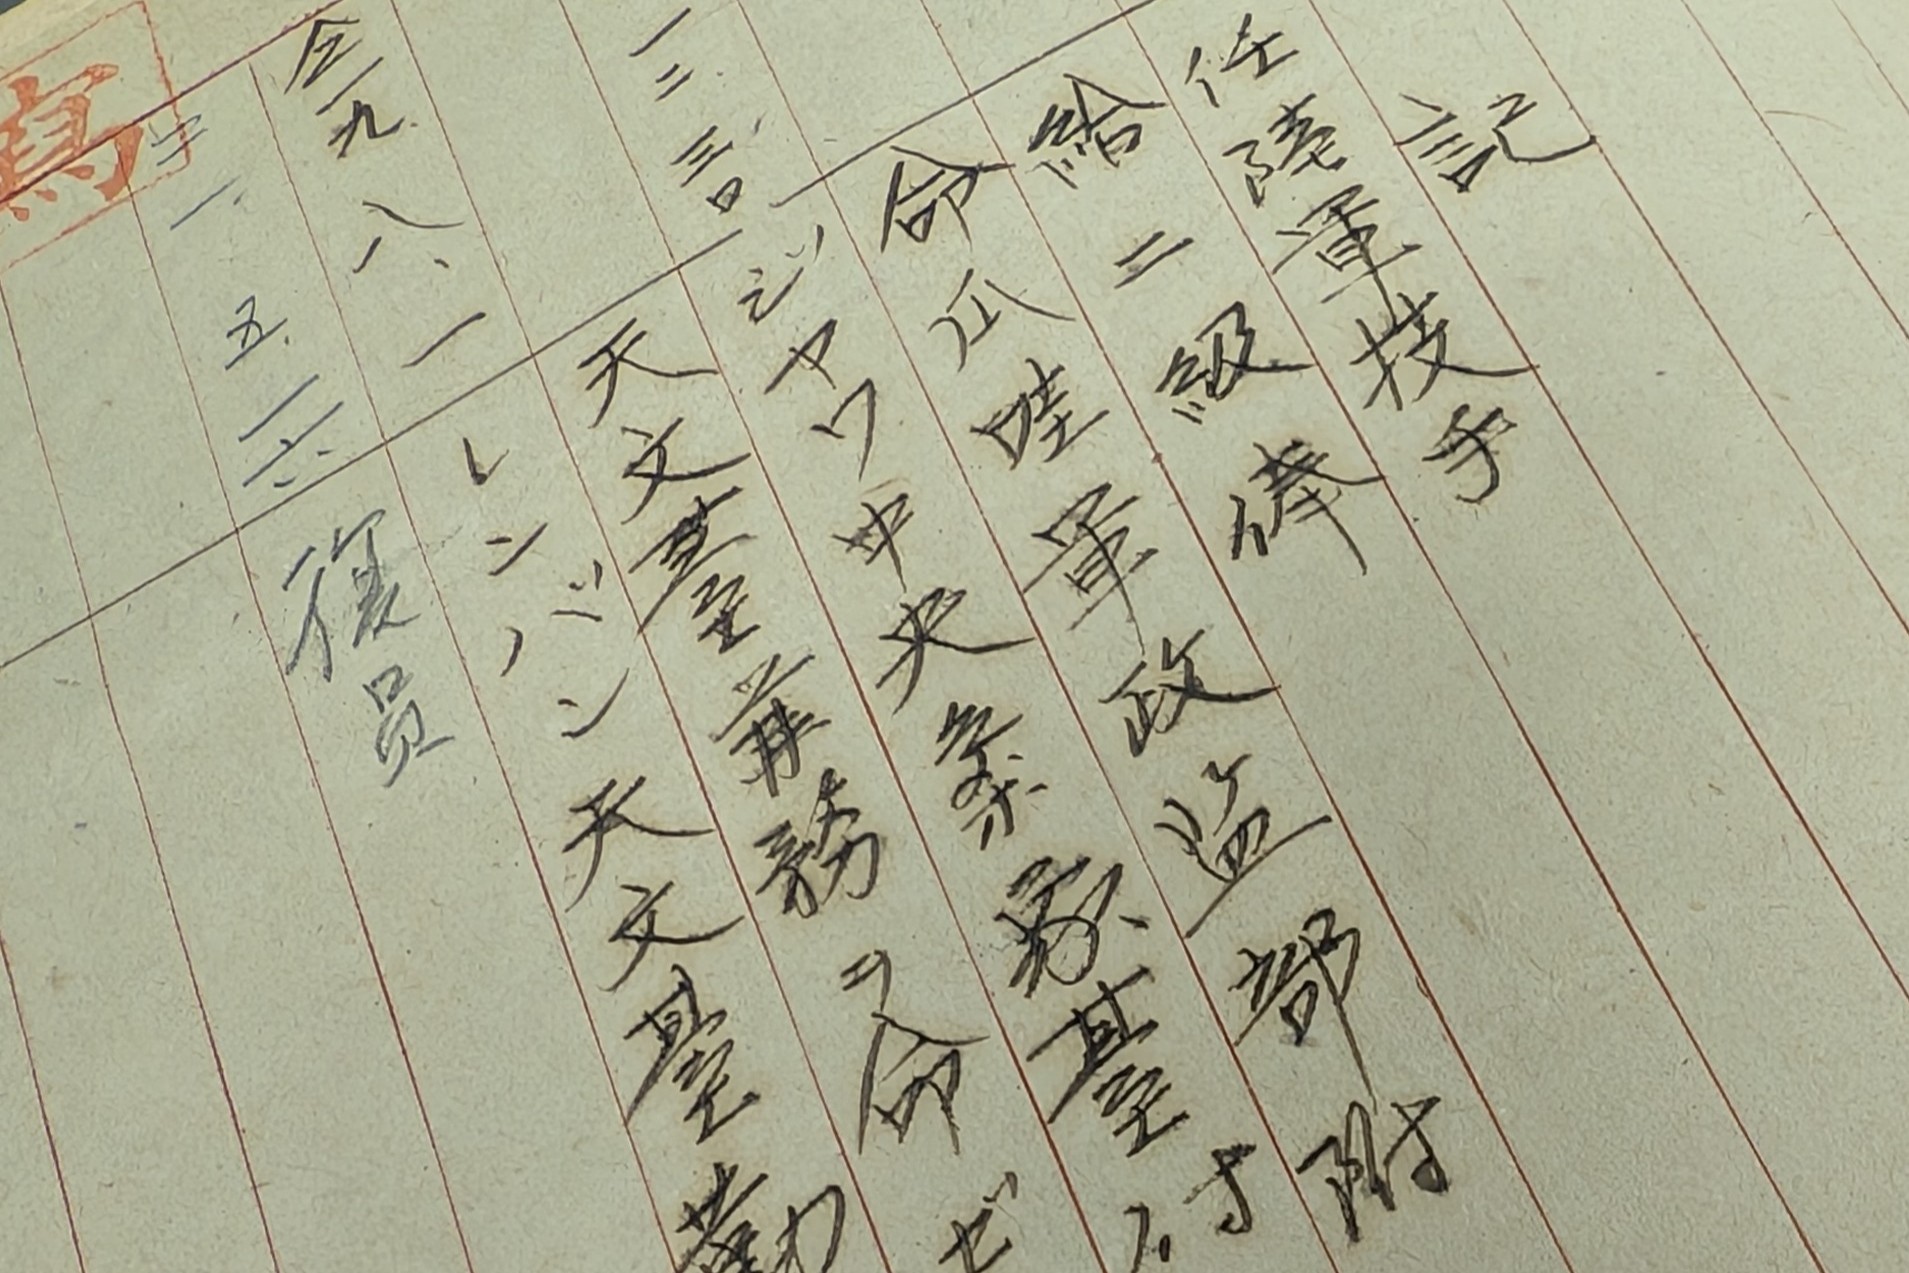 記
任陸軍技手
給二級俸
命爪哇軍政監部附
一二、三〇 ジヤワ中央気象臺付
天文臺兼務ヲ命ゼ
仝 一九、八、一 レンバン天文臺勤
二一、五、二六、 復員
寫